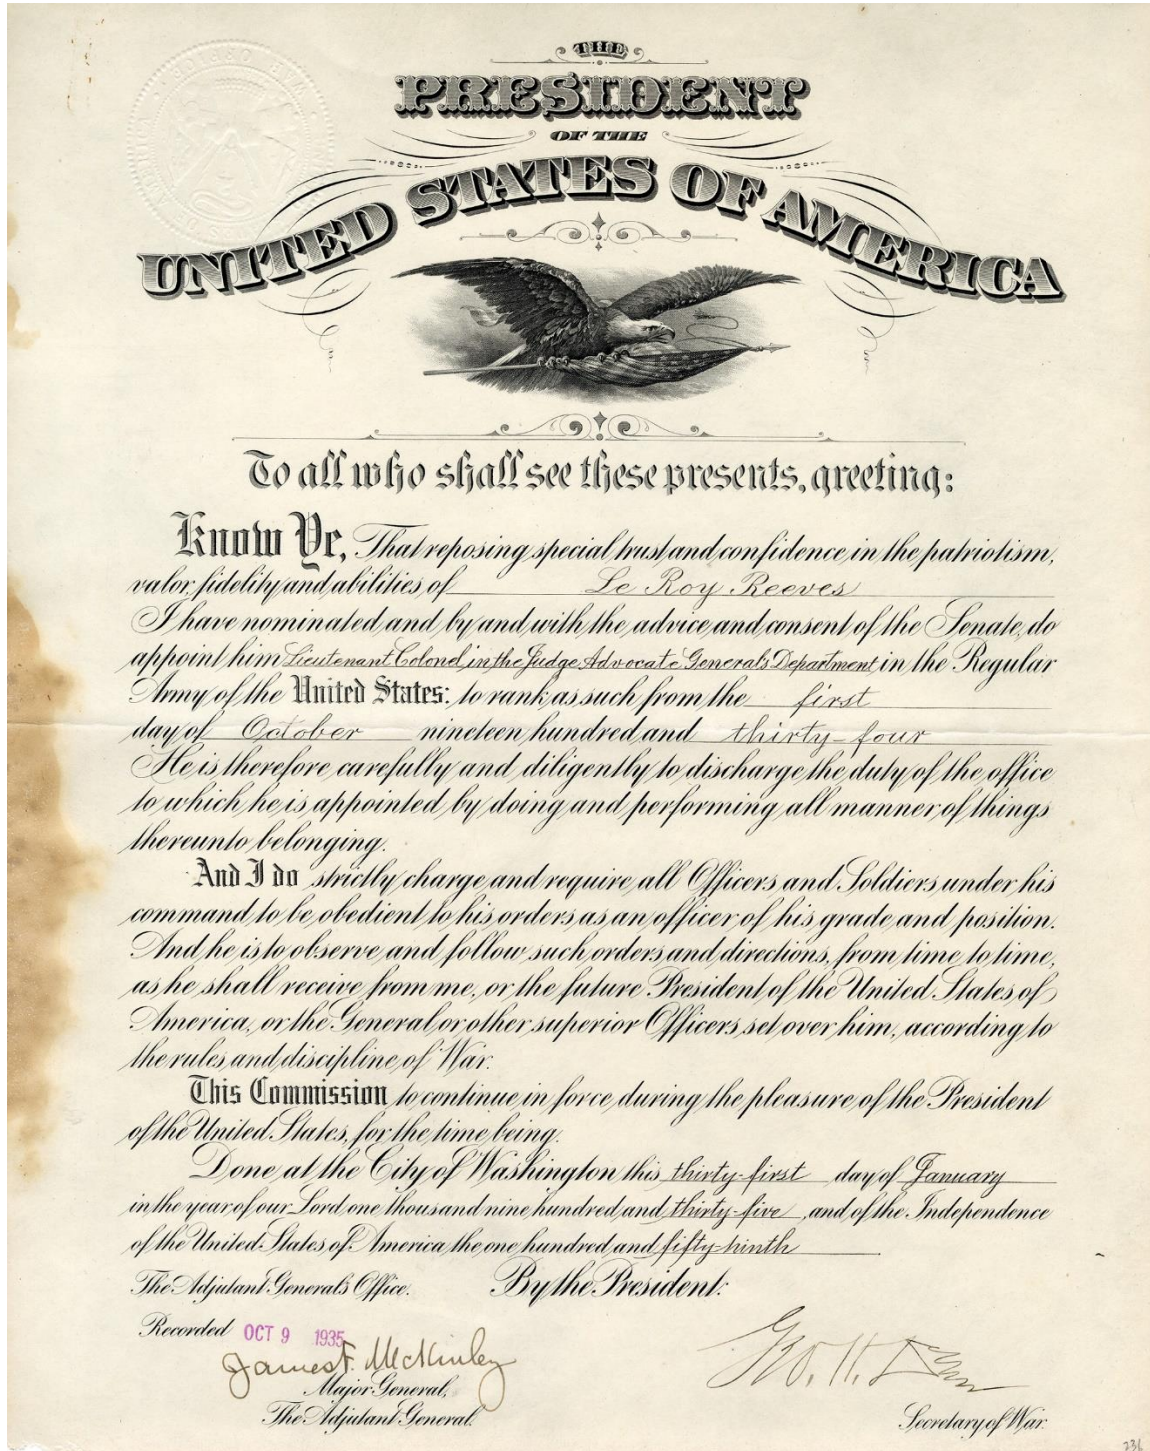 THE
PRESIDENT
OF THE
UNITED STATES OF AMERICA
To all who shall see these presents, greeting:
Know Ye, That reposing special trust and confidence in the patriotism,
valor, fidelity and abilities of Le Roy Reeves
I have nominated and by and with the advice and consent of the Senate, do
appoint him Lieutenant Colonel, in the Judge Advocate General's Department in the Regular
Army of the United States: to rank as such from the first
day of October nineteen hundred and thirty-four
He is therefore carefully and diligently to discharge the duty of the office
to which he is appointed by doing and performing all manner of things
thereunto belonging.
And I do strictly charge and require all Officers and Soldiers under his
command to be obedient to his orders as an officer of his grade and position.
And he is to observe and follow such orders and directions, from time to time,
as he shall receive from me, or the future President of the United States of
America, or the General or other superior Officers set over him, according to
the rules and discipline of War.
This Commission to continue in force during the pleasure of the President
of the United States, for the time being.
Done at the City of Washington this thirty-first day of January
in the year of our Lord one thousand nine hundred and thirty-five, and of the Independence
of the United States of America the one hundred and fifty-ninth
The Adjutant General's Office. By the President:
Recorded OCT 9 1935
James F. McKinley
Geo. H. Dern
Major General,
The Adjutant General.
Secretary of War.
236